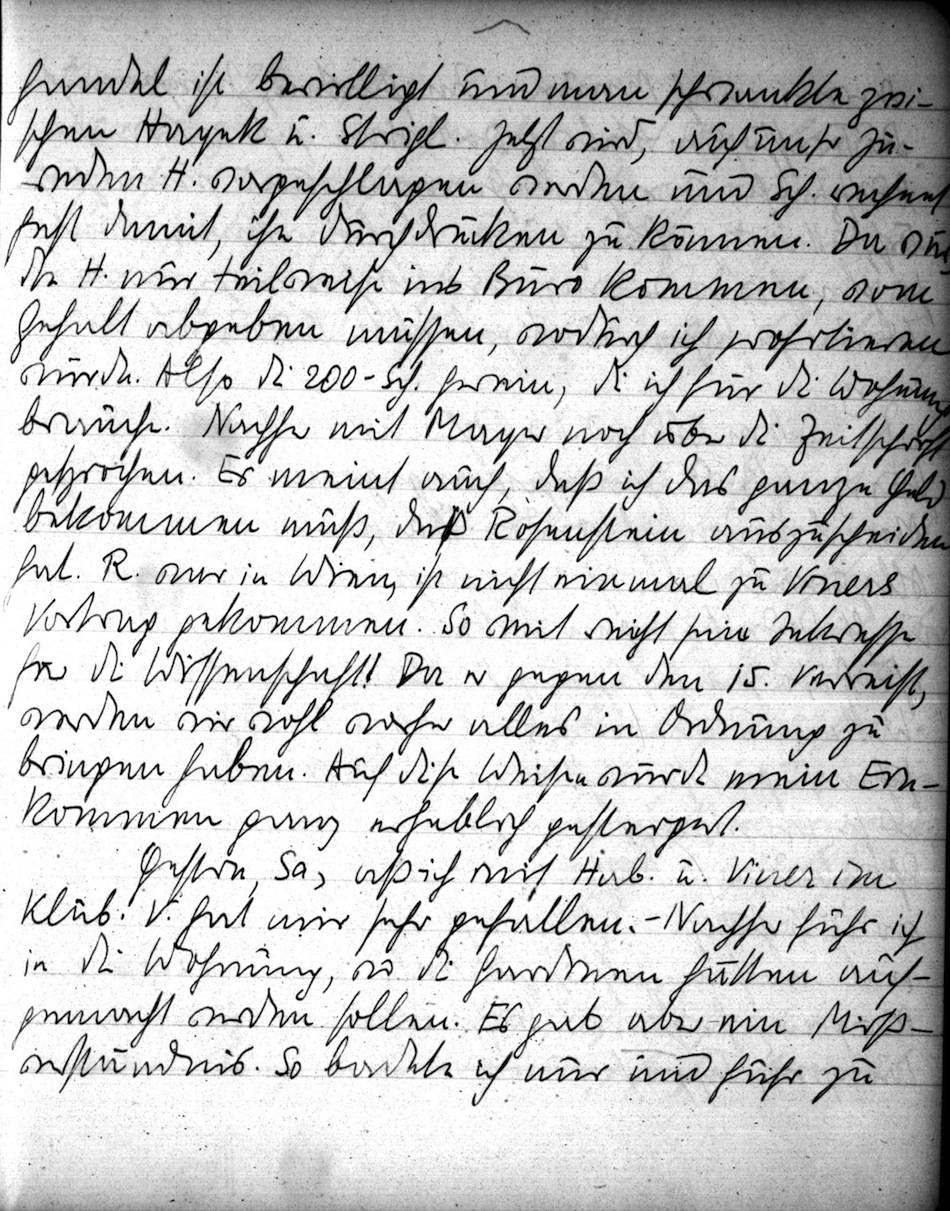 handel ist bewilligt und man schwankte zwi-
schen Hayek u. Strigl. Jetzt wird, auf unser Zu-
reden H. vorgeschlagen werden und Sch. rechnet
fest damit, ihn durchdrücken zu können. Da wür-
de H. nur teilweise ins Büro kommen, vom
Gehalt abgeben müssen, wodurch ich profitieren
würde. Also die 200 - Sch. herein, die ich für die Wohnung
brauche. Nachher mit Mayer noch über die Zeitschrift
gesprochen. Er meint auch, daß ich das ganze Geld
bekommen muß, daß Rosenstein auszuscheiden
hat. R. war in Wien, ist nicht einmal zu Viners
Vortrag gekommen. So weit reicht sein Interesse
für die Wissenschaft! Da er gegen den 15. verreist,
werden wir wohl vorher alles in Ordnung zu
bringen haben. Auf diese Weise würde mein Ein-
kommen ganz erheblich gesteigert.
Gestern, Sa, aß ich mit Hab. u. Viner im
Klub. V. hat mir sehr gefallen. - Nachher fuhr ich
in die Wohnung, wo die Gardinen hätten auf-
gemacht werden sollen. Es gab aber ein Miß-
verständnis. So badete ich nur und fuhr zu